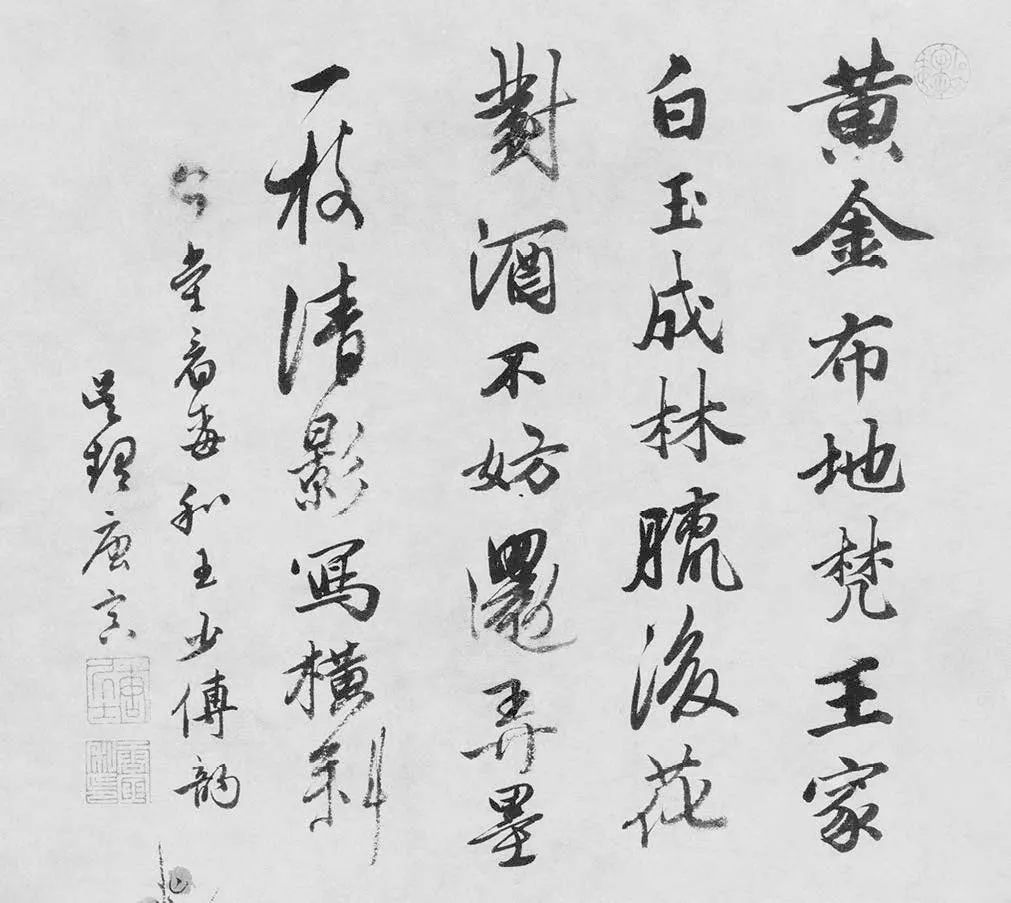 黄金布地梵王家
白玉成林臘後花
對酒不妨還弄墨
一枝清影寫橫斜
堂看梅和王少傅韻
吳趨唐寅